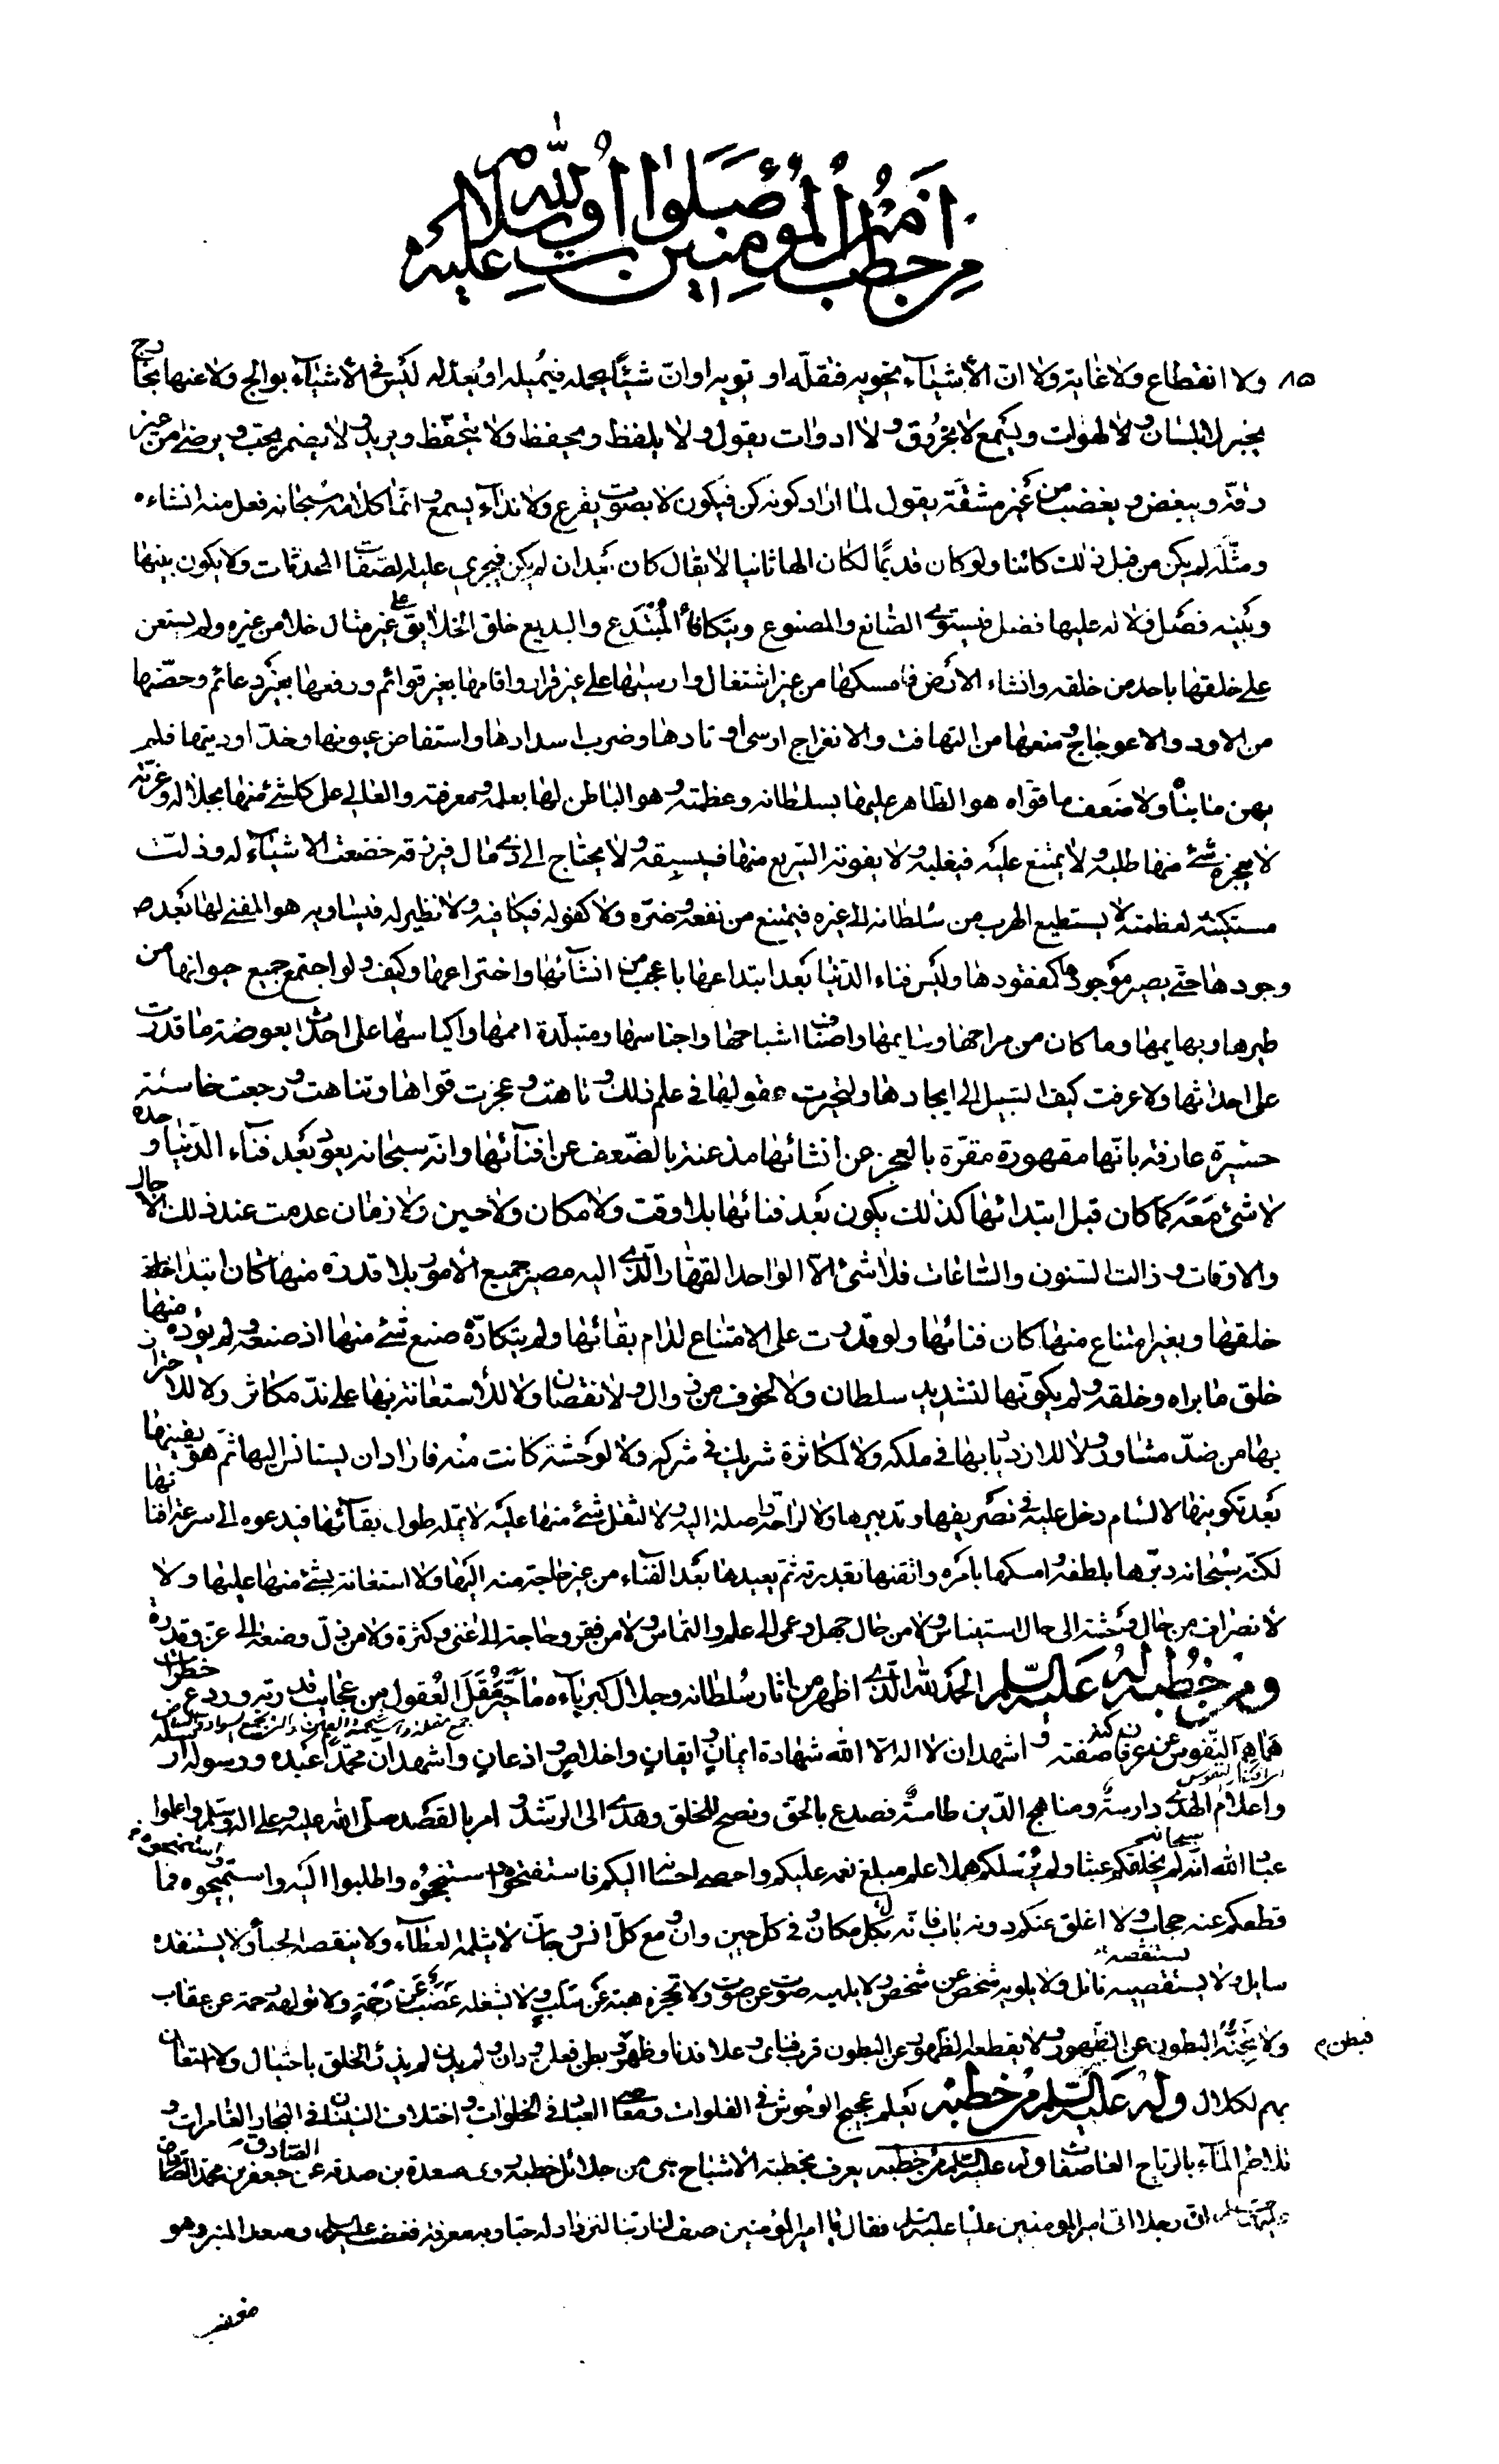 من خطب أمير المؤمنين صلوات الله وسلامه عليه
٨٥ ولا انقطاع ولا غاية ولا ان الأشياء تحويه فتقلّه او تهويه او انّ شيئًا يحمله فيميله او يعدّله ليس في الأشياء بوالج ولا عنها بخارج
يخبر لا بلسان ولا لهوات ويسمع لا بخروق ولا ادوات يقول ولا يلفظ ويحفظ ولا يتحفّظ ويريد ولا يضمر يحبّ ويرضى من غير
رقّة ويبغض ويغضب من غير مشقّة يقول لما اراد كونه كن فيكون لا بصوت يقرع ولا نداء يسمع وانّما كلامه سبحانه فعل منه انشاءه
ومثّله لم يكن من قبل ذلك كائنا ولو كان قديمًا لكان الها ثانيا لا يقال كان بعد ان لم يكن فيجري عليه الصّفات المحدثات ولا يكون بينها
وبينه فصل ولا له عليها فضل فيستوي الصّانع والمصنوع ويتكافأ المبتدع والبديع خلق الخلايق على غير مثال خلا من غيره ولم يستعن
على خلقها باحد من خلقه وانشاء الأرض فامسكها من غير اشتغال وارسيها على غير قرار واقامها بغير قوائم ورفعها بغير دعائم وحصّنها
من الاود والاعوجاج ومنعها من التهافت والانفراج ارسى اوتادها وضرب اسدادها واستفاض عيونها وخدّ اوديتها فلم
يهن ما بناه ولا ضعف ما قواه هو الظاهر عليها بسلطانه وعظمته وهو الباطن لها بعلمه ومعرفته والعالي على كلّ شئ منها بجلاله وعزّته
لا يعجزه شئ منها طلبه ولا يمتنع عليه فيغلبه ولا يفوته السّريع منها فيسبقه ولا يحتاج الى ذي مال فيرزقه خضعت الاشياء له وذلّت
مستكينة لعظمته لا يستطيع الهرب من سلطانه الى غيره فيمتنع من نفعه وضرّه ولا كفو له فيكافيه ولا نظير له فيساويه هو المفني لها بعد
وجودها حتّى يصير موجودها كمفقودها وليس فناء الدّنيا بعد ابتداعها باعجب من انشائها واختراعها وكيف ولو اجتمع جميع حيوانها من
طيرها وبهايمها وما كان من مراحها وسايمها واصناف اشباحها واجناسها ومتبلّدة اممها واكياسها على احداث بعوضة ما قدرت
على احداثها ولا عرفت كيف السّبيل الى ايجادها ولتحيّرت عقولها في علم ذلك وتاهت وعجزت قواها وتناهت ورجعت خاسئة
حسيرة عارفة بانّها مقهورة مقرّة بالعجز عن انشائها مذعنة بالضّعف عن افنائها وانّه سبحانه يعود بعد فناء الدّنيا وحده
لا شئ معه كما كان قبل ابتدائها كذلك يكون بعد فنائها بلا وقت ولا مكان ولا حين ولا زمان عدمت عند ذلك الآجال
والاوقات وزالت السّنون والسّاعات فلا شئ الّا الواحد القهّار الّذي اليه مصير جميع الأمور بلا قدرة منها كان ابتداء
خلقها وبغير امتناع منها كان فنائها ولو قدرت على الامتناع لدام بقائها ولم يتكادّه صنع شئ منها اذ صنعه ولم يؤده منها
خلق ما براه وخلقه ولم يكوّنها لتشديد سلطان ولا لخوف من زوال ولا نقصان ولا للاستعانة بها على ندّ مكاثر ولا للاحتراز
بها من ضدّ مثاور ولا للازدياد بها في ملكه ولا لمكاثرة شريك في شركه ولا لوحشة كانت منه فاراد ان يستانس اليها ثمّ هو يفنيها
بعد تكوينها لا لسام دخل عليه في تصريفها وتدبيرها ولا لراحة واصلة اليه ولا لثقل شئ منها عليه لا يملّه طول بقائها فيدعوه الى سرعة افنائها
لكنّه سبحانه دبّرها بلطفه وامسكها بامره واتقنها بقدرته ثمّ يعيدها بعد الفناء من غير حاجة منه اليها ولا استعانة بشئ منها عليها ولا
لانصراف من حال وحشة الى حال استيناس ولا من حال جهل وعمى الى علم والتماس ولا من فقر وحاجة الى غنى وكثرة ولا من ذلّ وضعة الى عزّ وقدرة
ومن خطبة له عليه السّلم الحمد لله الّذي اظهر من اثار سلطانه وجلال كبريائه ما حيّر مقل العقول من عجايب قدرته وردع خطرات
هماهم النّفوس عن عرفان كنه صفته واشهد ان لا اله الا الله شهادة ايمان وايقان واخلاص واذعان واشهد ان محمّدًا عبده ورسوله ارسله
واعلام الهدى دارسة ومناهج الدّين طامسة فصدع بالحق ونصح للخلق وهدى الى الرشد وامر بالقصد صلّى الله عليه وعلى آله وسلّم واعلموا
عباد الله انّه لم يخلقكم عبثا ولم يرسلكم هملا علم مبلغ نعمه عليكم واحصى احسانه اليكم فاستفتحوه واستنجحوه واطلبوا اليه واستميحوه فما
قطعكم عنه حجاب ولا اغلق عنكم دونه باب فانّه لبكلّ مكان وفي كلّ حين واوان ومع كلّ انس وجانّ لا يثلمه العطاء ولا ينقصه الحباء ولا يستنفده
سايل ولا يستقصيه نائل ولا يلويه شخص عن شخص ولا يلهيه صوت عن صوت ولا تحجزه هبة عن سلب ولا يشغله غضب عن رحمة ولا تولهه رحمة عن عقاب
ولا يجنّه البطون عن الظّهور ولا يقطعه الظّهور عن البطون قرب فنأى وعلا فدنا وظهر فبطن وبطن فعلن ودان ولم يدن لم يذرء الخلق باحتيال ولا استعان
بهم لكلال وله عليه السّلم من خطبة يعلم عجيج الوحوش في الفلوات ومعاصي العباد في الخلوات واختلاف النينان في البحار الغامرات و
تلاطم الماء بالرّياح العاصفات وله عليه السّلم من خطبة يعرف بخطبة الأشباح وهي من جلائل خطبه روى مسعدة بن صدقة عن جعفر بن محمّد الصّادق
عليهما السلم انّ رجلا اتى امير المؤمنين عليّا عليه السّلم فقال يا امير المؤمنين صف لنا ربّنا لنزداد له حبّا وبه معرفة فغضب عليه السلم وصعد المنبر وهو
مغضب